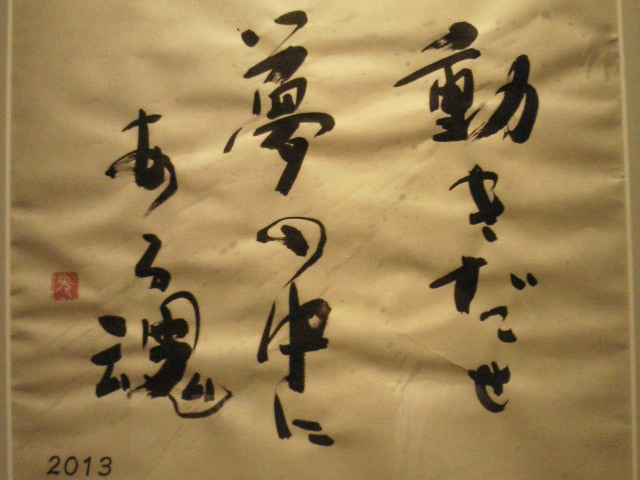 動きだせ
夢の中に
ある魂
2013